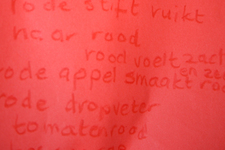 rode stift ruikt
naar rood
rood voelt zacht
en ze
rode appel smaakt roo
rode dropveter
tomatenrood